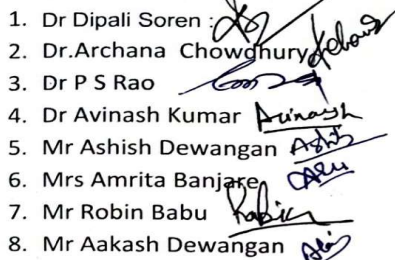 1. Dr Dipali Soren :
2. Dr.Archana Chowdhury
3. Dr P S Rao
4. Dr Avinash Kumar Avinash
5. Mr Ashish Dewangan Ashish
6. Mrs Amrita Banjare
7. Mr Robin Babu Robin
8. Mr Aakash Dewangan